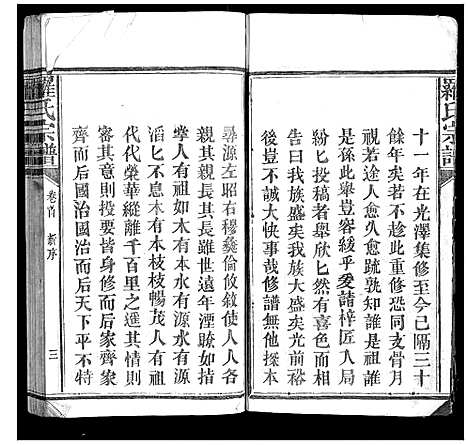 羅氏宗譜
十一年在光澤集修至今已隔三十
餘年矣若不趁此重修恐同支骨月
視若途人愈久愈疏孰知誰是祖誰
是孫此舉豈容緩乎爰請梓匠入局
劂匕投稿者舉欣匕然有喜色而相
告曰我族大盛矣我族大盛矣光前裕
後豈不誠大快事哉修譜無他探本
尋源左昭右穆彝倫攸敘使人人各
親其親長其長雖世遠年湮瞭如指
掌人有祖如木有本水有源水有源
滔匕不息木有本枝枝暢茂人有祖
代代榮華縱離千百里之遥其情同
出一人皆得身修而后家齊家
齊而后國治國治而后天下平不特
羅氏宗譜
卷首
新序
三